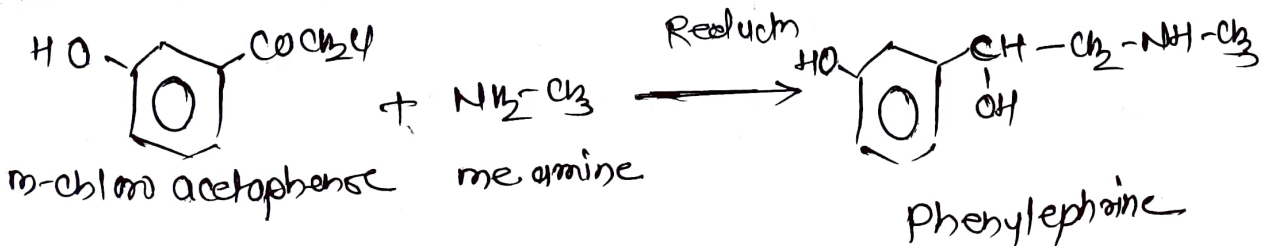 HO COCH2Cl + NH2-CH3 Reductn HO CH-CH2-NH-CH3
OH
m-chloro acetophenoe me amine
Phenylephrine